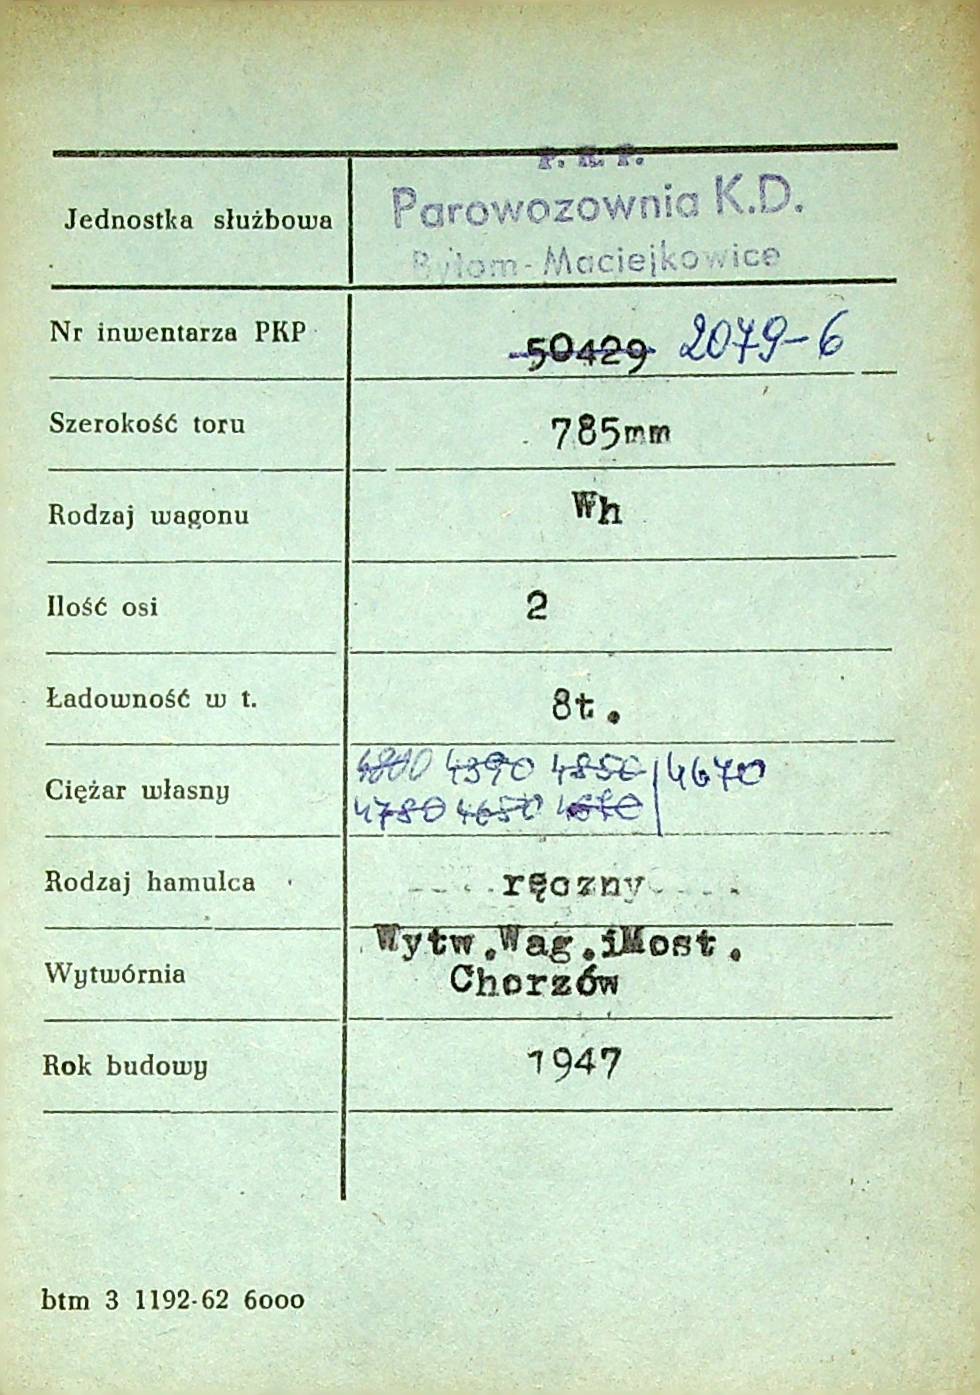 P. K. P.
Jednostka służbowa Parowozownia K.D.
Bytom-Maciejkowice
Nr inwentarza PKP 50429 2079-6
Szerokość toru 785mm
Rodzaj wagonu Wh
Ilość osi 2
Ładowność w t. 8t.
Ciężar własny 4800 4390 4850 4670
4780 4650
Rodzaj hamulca ręczny
Wytwórnia Wytw.Wag.iMost.
Chorzów
Rok budowy 1947
btm 3 1192-62 6000